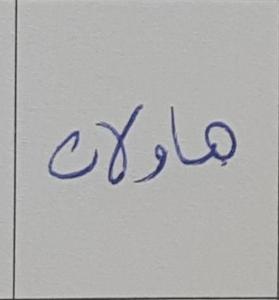 هاولات